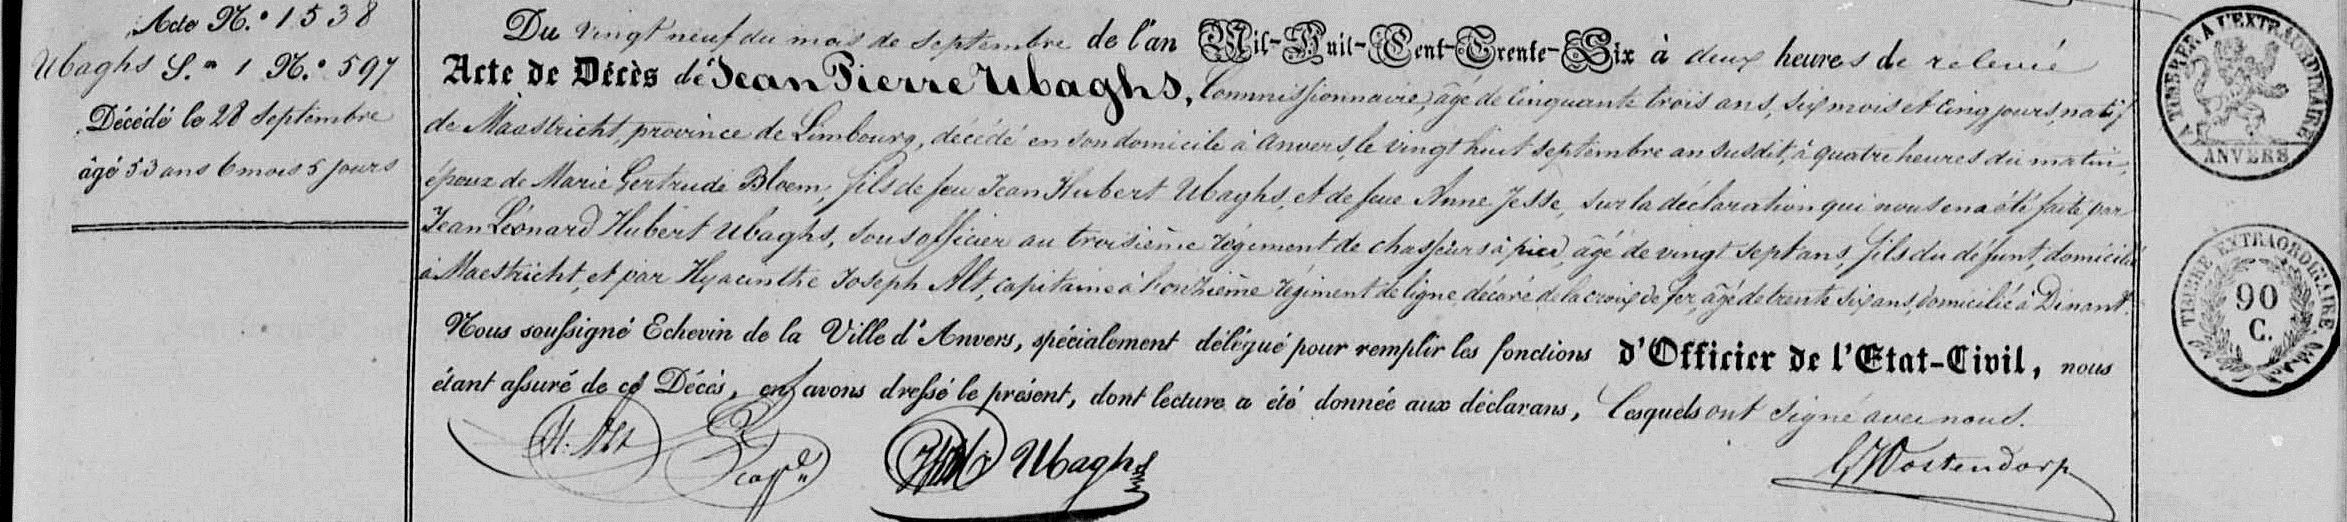 Acte N.º 1538
Ubaghs S.n 1 N.º 597
Décédé le 28 Septembre
âgé 53 ans 6 mois 5 jours
Du vingt neuf du mois de Septembre de l'an Mil-Huit-Cent-Trente-Six à deux heures de relevée
Acte de Décès de Jean Pierre Ubaghs, Commissionnaire, âgé de Cinquante trois ans, six mois et Cinq jours, natif
de Maestricht, province de Limbourg, décédé en son domicile à Anvers, le vingt huit septembre an susdit, à quatre heures du matin,
époux de Marie Gertrude Bloem, fils de feu Jean Hubert Ubaghs, et de feue Anne Jesse, sur la déclaration qui nous en a été faite par
Jean Léonard Hubert Ubaghs, sous officier au troisième régiment de chasseurs à pied, âgé de vingt sept ans, fils du défunt, domicilié
à Maestricht, et par Hyacinthe Joseph Alt, capitaine à l'onzième régiment de ligne, décoré de la croix de fer, âgé de trente six ans, domicilié à Dinant.
Nous soussigné Echevin de la Ville d'Anvers, spécialement délégué pour remplir les fonctions d'Officier de l'Etat-Civil, nous
étant assuré de ce Décès, en avons dressé le présent, dont lecture a été donnée aux déclarans, lesquels ont signé avec nous.
H. Alt
Ubaghs
Oostendorp
TIMBRE A L'EXTRAORDINAIRE
ANVERS
TIMBRE EXTRAORDINAIRE
90
C.